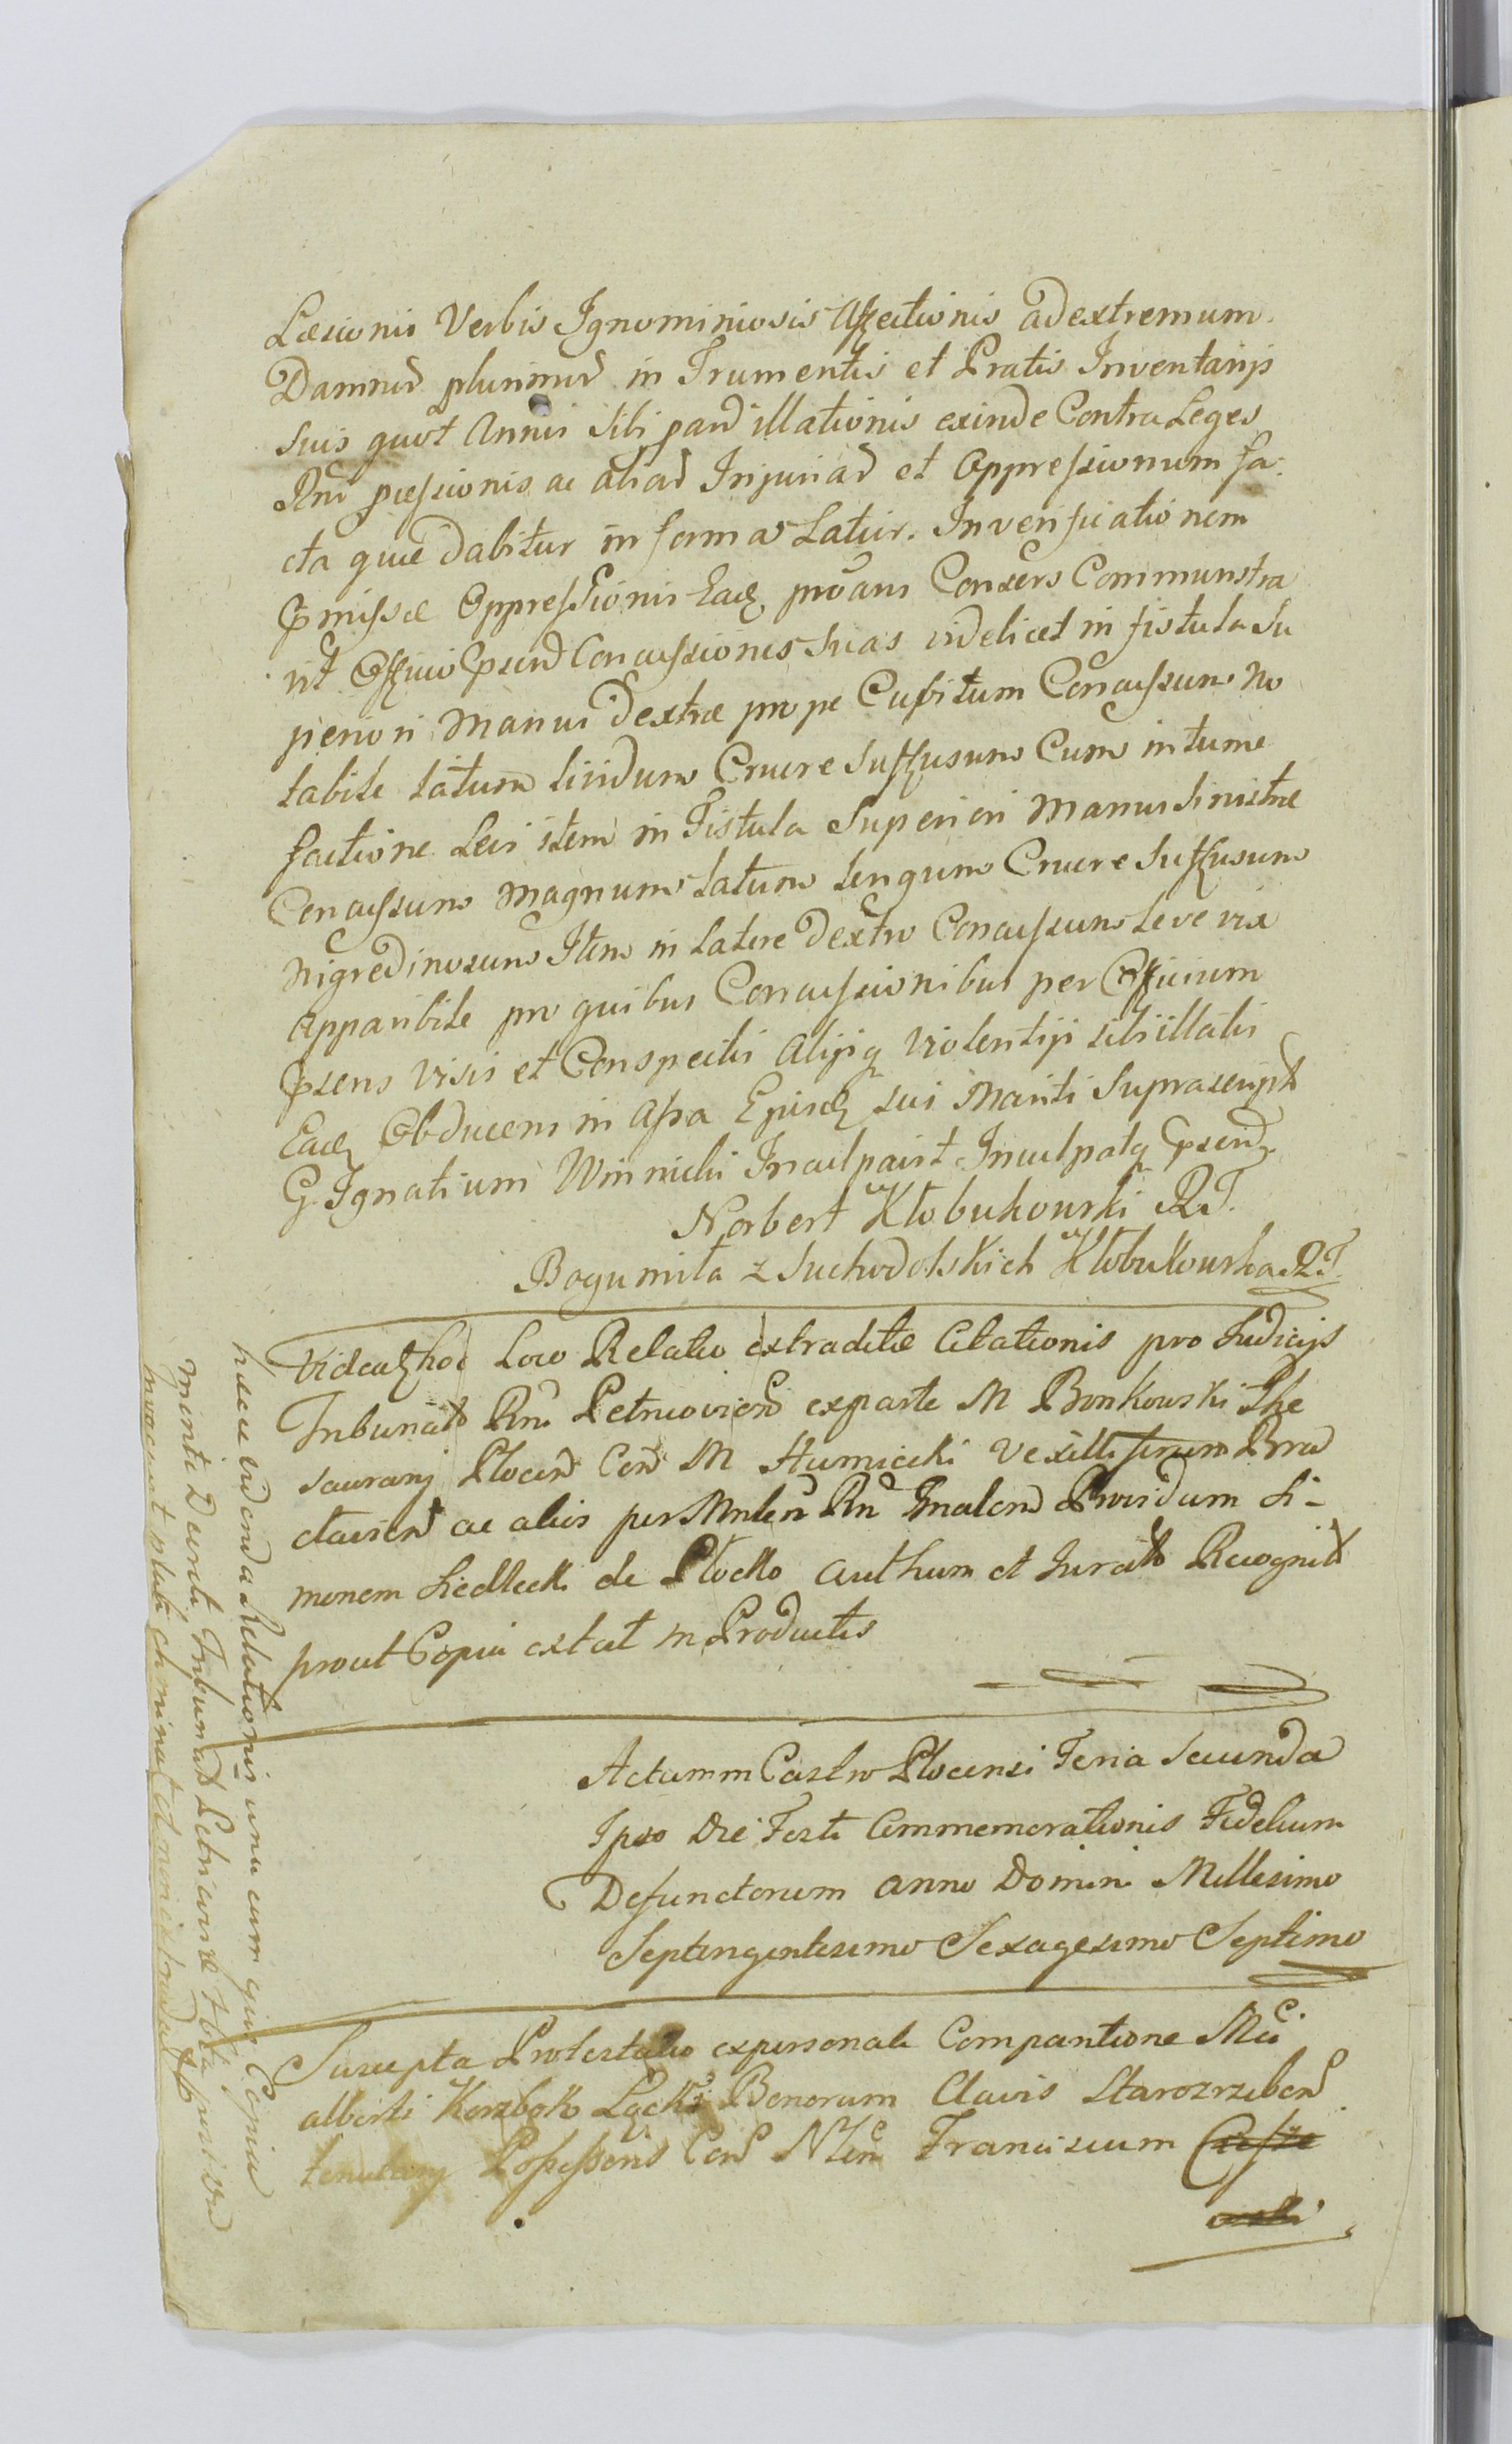 Læsionis Verbis Ignominiosis Affectionis ad extremum
Damnor plurimor in Frumentis et Pratis Inventarijs
suis quot Annis sibi par illationis exinde Contra Leges
Rni pressionis ac aliar Injuriar et Oppressionum fa:
cta quæ dabitur in forma Latiir. In verificationem
pmissæ Oppressionis Eadq proãns Consers Communstra
vit Officio Pserñ Concussiones suas videlicet in fistula Su
periori Manus dextræ prope Cubitum Concussum No
tabile latum lividum Cruore Suffusum Cum intume
factione Levi item in Fistula Superiori Manus Sinistræ
Concussum Magnum latum longum Cruore Suffusum
nigredinosum Item in latere dextro Concussum leve vix
Apparibile pro quibus Concussionibus per Officium
Psens Visis et Conspectis Alijsq Violentijs sibi illatis
Eadq Obducens in Assa Ejusdq sui Mariti Suprascript
G Ignatium Winnicki Inculpavit Inculpatq Pserñ
Norbert Kłobukowski RT.
Bogumiła z Suchodolskich Kłobukowska RT.
Videatq hoc Loco Relatio extraditæ Citationis pro Judicijs
Tribunalb Rni Petricovien ex parte M Bonkowski The
saurarij Plocen Con M Humiecki Vexilliferum Bra
clavien ac alios per Mnlem Rni Gnalem Providum Si-
monem Siedlecki de Plocko authum et Jurat Recognit
prout Copia extat in Productis
Actum in Castro Plocensi Feria Secunda
Ipso Die Festi Commemorationis Fidelium
Defunctorum anno Domini Millesimo
Septingentesimo Sexagesimo Septimo
Suscepta Protestatio ex personali Comparitione Mci
alberti Korzbok Lącki Bonorum Clavis Starozrzeben
tenutarij Possessoris Con N Franciscum
oski
hæcce videnda Relationis una cum ejus Copia